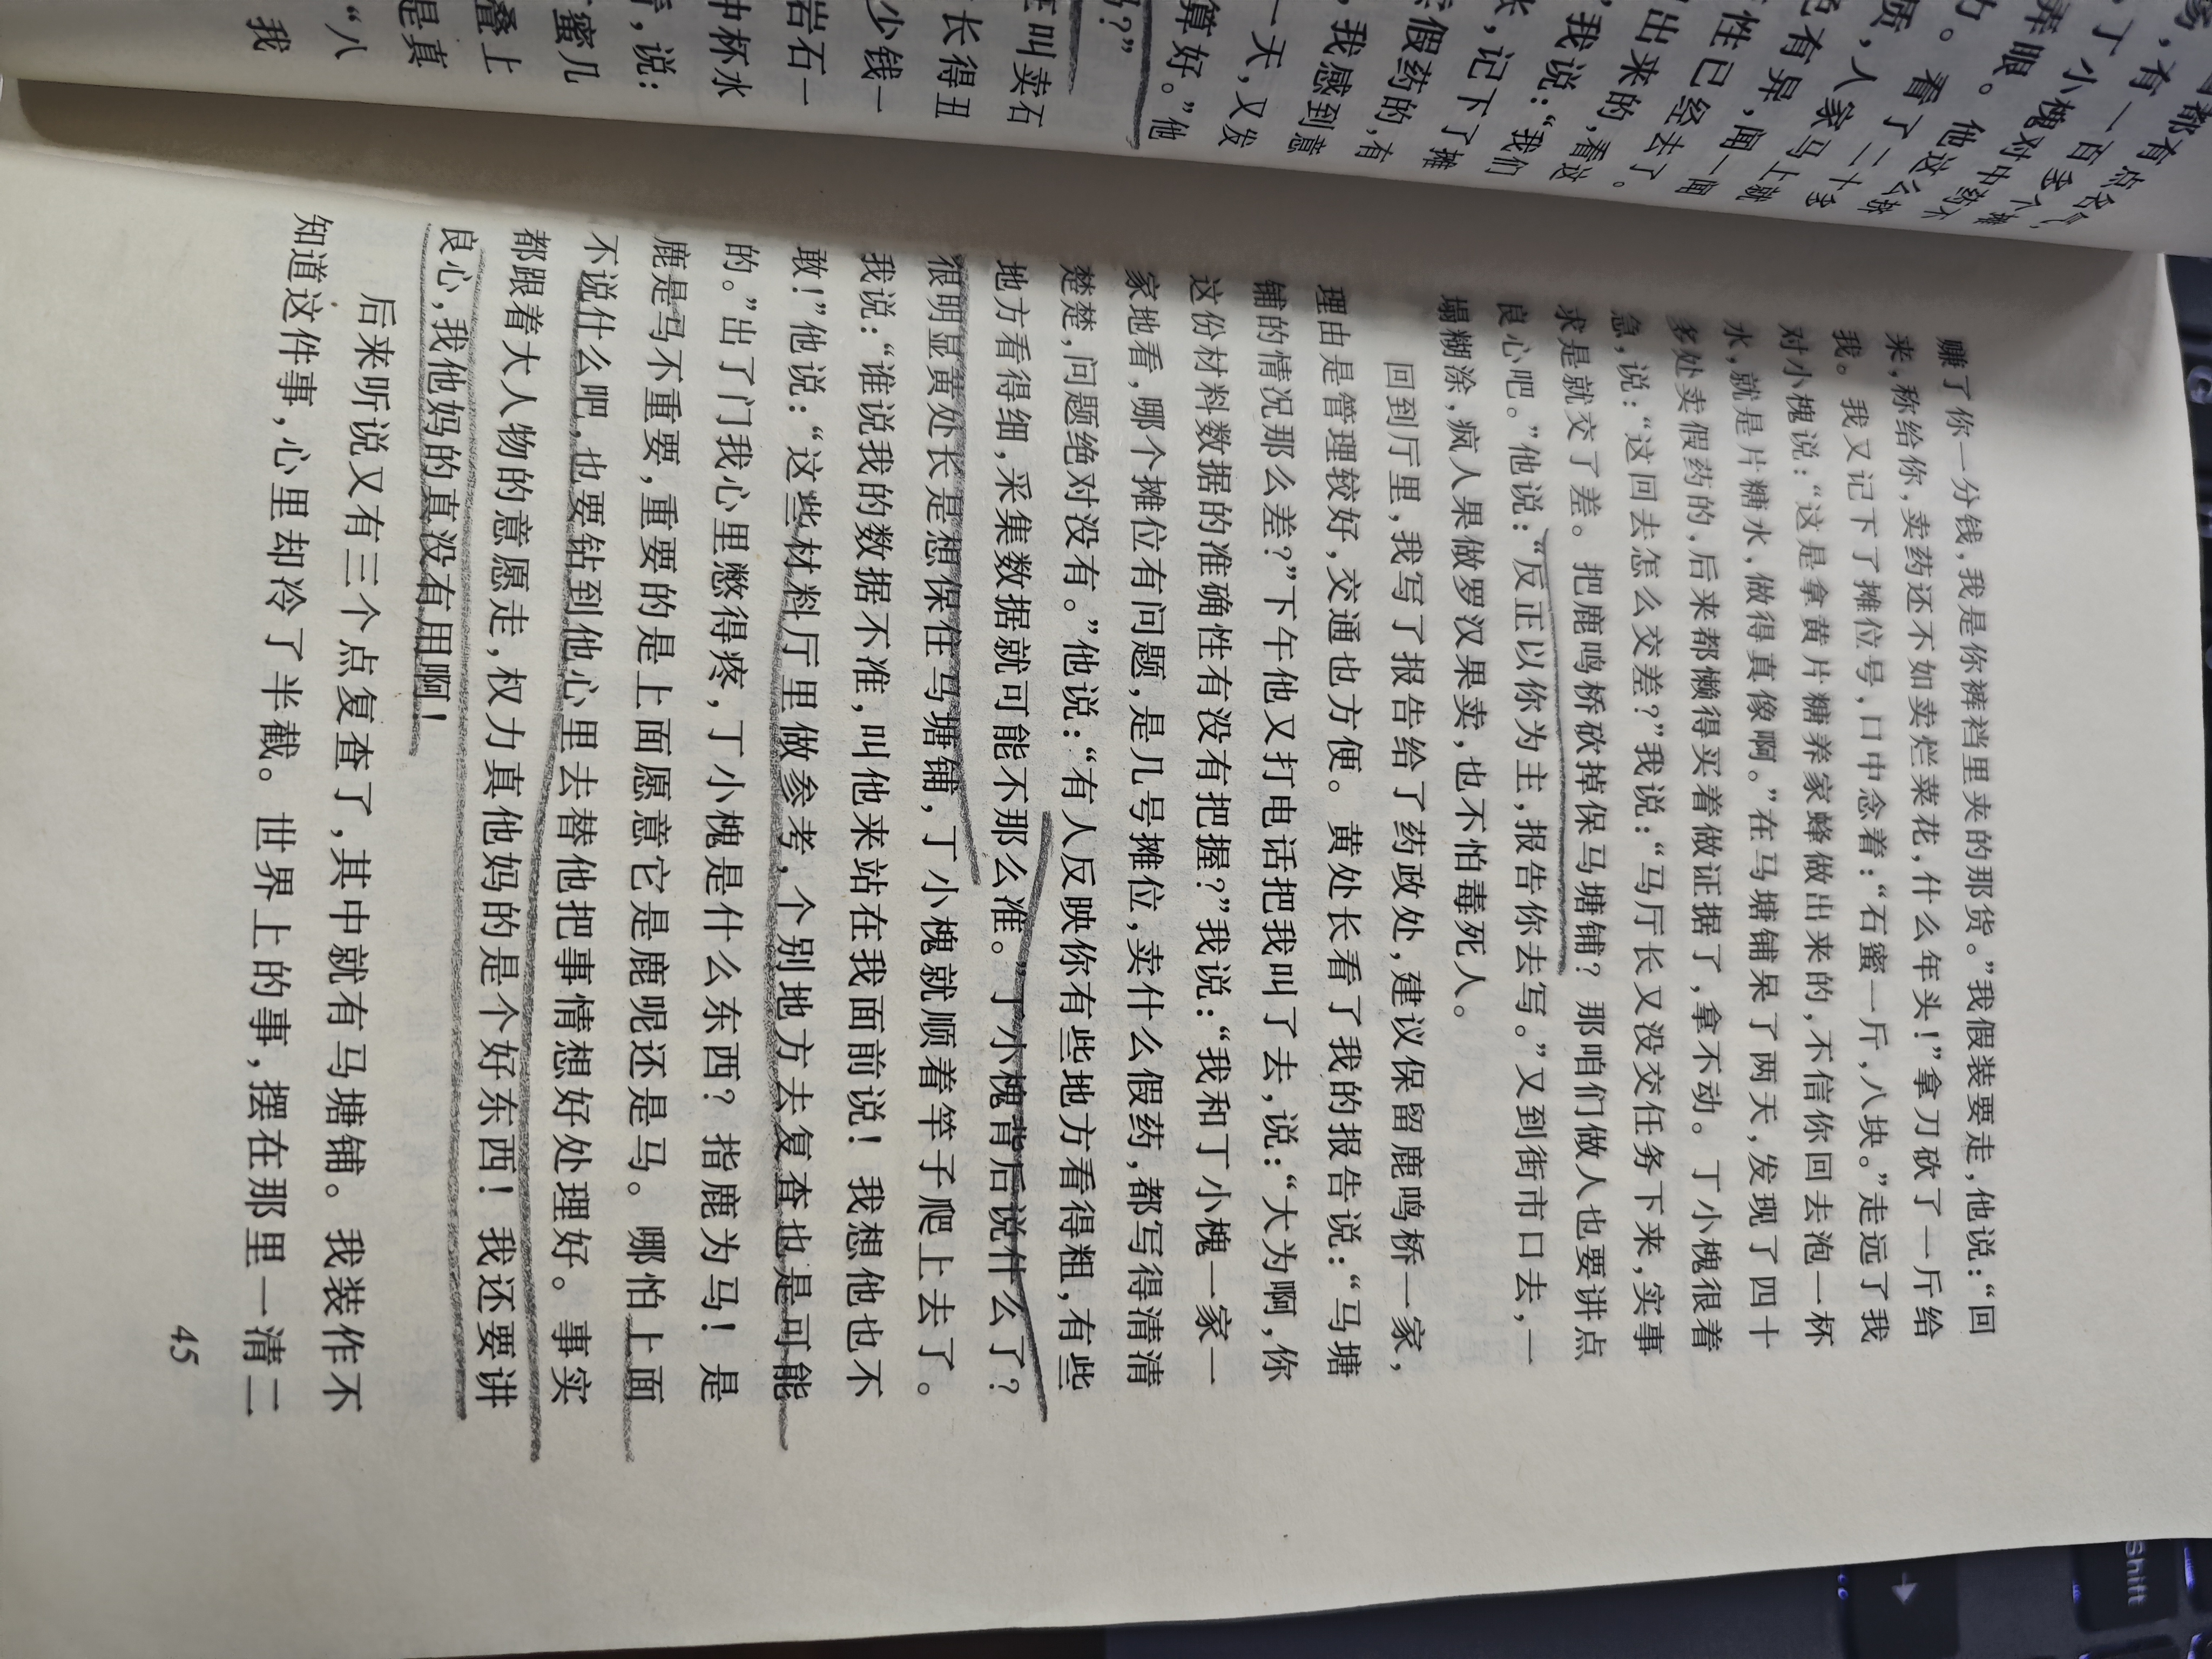 都有点名气,
有一百多个摊
了小槐对中药不
弄眼。他这么挤
看了二十多
人家马上就
有异,闻一闻
性已经去了。
出来的,看这
我说:“我们
记下了摊
假药的,有
,我感到意
一天,又发
算好。”他
?”
叫卖石
长得丑
少钱一
岩石一
中杯水
,说:
蜜几
叠上
是真
“八
我
赚了你一分钱,我是你裤裆里夹的那货。”我假装要走,他说:“回
来,称给你,卖药还不如卖烂菜花,什么年头!”拿刀砍了一斤给
我。我又记下了摊位号,口中念着:“石蜜一斤,八块。”走远了我
对小槐说:“这是拿黄片糖养家蜂做出来的,不信你回去泡一杯
水,就是片糖水,做得真像啊。”在马塘铺呆了两天,发现了四十
多处卖假药的,后来都懒得买着做证据了,拿不动。丁小槐很着
急,说:“这回去怎么交差?”我说:“马厅长又没交任务下来,实事
求是就交了差。把鹿鸣桥砍掉保马塘铺?那咱们做人也要讲点
良心吧。”他说:“反正以你为主,报告你去写。”又到街市口去,一
塌糊涂,疯人果做罗汉果卖,也不怕毒死人。
回到厅里,我写了报告给了药政处,建议保留鹿鸣桥一家,
理由是管理较好,交通也方便。黄处长看了我的报告说:“马塘
铺的情况那么差?”下午他又打电话把我叫了去,说:“大为啊,你
这份材料数据的准确性有没有把握?”我说:“我和丁小槐一家一
家地看,哪个摊位有问题,是几号摊位,卖什么假药,都写得清清
楚楚,问题绝对没有。”他说:“有人反映你有些地方看得粗,有些
地方看得细,采集数据就可能不那么准。”丁小槐背后说什么了?
很明显黄处长是想保住马塘铺,丁小槐就顺着竿子爬上去了。
我说:“谁说我的数据不准,叫他来站在我面前说!我想他也不
敢!”他说:“这些材料厅里做参考,个别地方去复查也是可能
的。”出了门我心里憋得疼,丁小槐是什么东西?指鹿为马!是
鹿是马不重要,重要的是上面愿意它是鹿呢还是马。哪怕上面
不说什么吧,也要钻到他心里去替他把事情想好处理好。事实
都跟着大人物的意愿走,权力真他妈的是个好东西!我还要讲
良心,我他妈的真没有用啊!
后来听说又有三个点复查了,其中就有马塘铺。我装作不
知道这件事,心里却冷了半截。世界上的事,摆在那里一清二
45
Shift